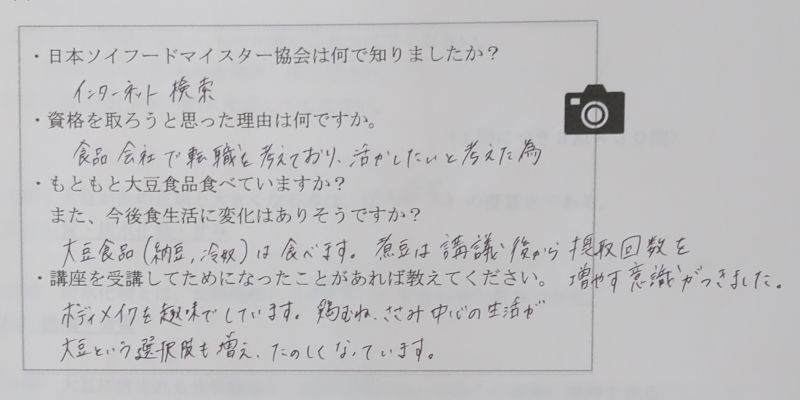 ・日本ソイフードマイスター協会は何で知りましたか？
インターネット検索
・資格を取ろうと思った理由は何ですか。
食品会社で転職を考えており、活かしたいと考えた為
・もともと大豆食品食べていますか？
また、今後食生活に変化はありそうですか？
大豆食品（納豆、冷奴）は食べます。煮豆は講議後から摂取回数を
増やす意識がつきました。
・講座を受講してためになったことがあれば教えてください。
ボディメイクを趣味でしています。鶏むね、ささみ中心の生活が
大豆という選択肢も増え、たのしくなっています。